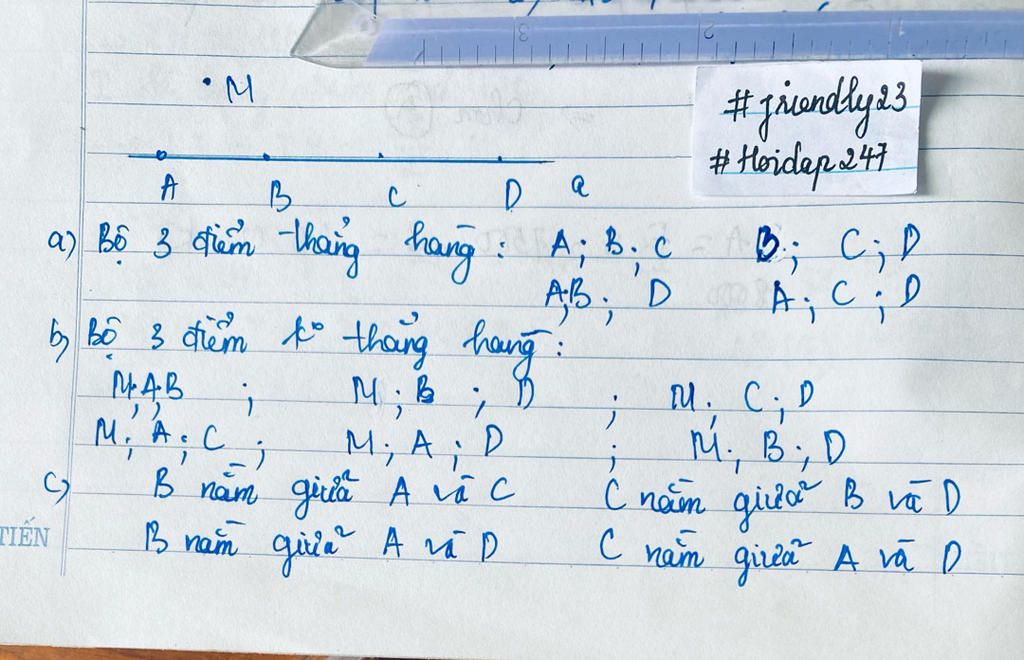 3 2
M
#friendly23
#Hoidap247
A B C D a
a) Bộ 3 điểm thẳng hàng: A; B; C B; C; D
A;B; D A; C; D
b) Bộ 3 điểm k° thẳng hàng:
M;A;B ; M; B ; D ; M; C; D
M; A; C ; M; A; D ; M; B; D
c) B nằm giữa A và C C nằm giữa B và D
TIẾN B nằm giữa A và D C nằm giữa A và D